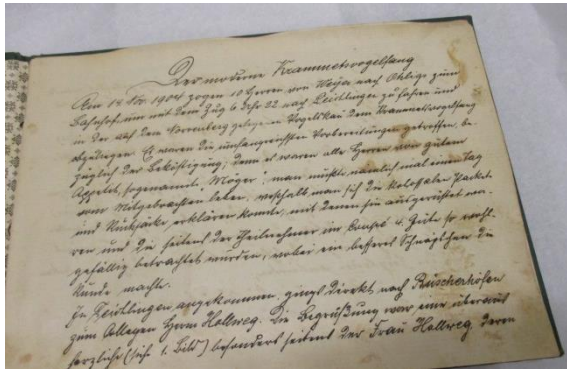 Der moderne Krammetsvogelfang
Am 18. Nov. 1904 zogen 10 Herren von Weyer nach Ohligs zum
Bahnhof um mit dem Zug 6 Uhr 22 nach Leichlingen zu fahren und
in der auf dem gelegenen Vogelskau dem Krammetsvogelfang
obzuliegen. Es waren die umfangreichsten Vorbereitungen getroffen, be-
züglich der Beköstigung, denn es waren alle Herren von gutem
Appetit, sogenannte "Möger", man mußte nämlich mal einen Tag
vom Mitgebrachten leben, weshalb man sich die kolossalen Packete
und Rucksäcke erklären konnte, mit denen sie ausgerüstet wa-
ren und die seitens der Theilnehmer im Coupé 4. Güte so wohl-
gefällig betrachtet wurden, wobei ein besseres Schnäpschen die
Runde machte.
In Leichlingen angekommen, gings direkt nach Büscherhöfen
zum Collegen Herrn Hollweg. Die Begrüßung war eine überaus
herzliche (siehe 1. Bild) besonders seitens der Frau Hollweg, deren